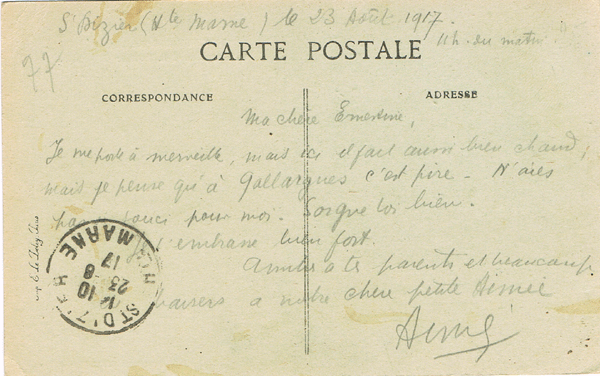 St Dizier (Hte Marne) le 23 Août 1917.
11h. du matin
77
CARTE POSTALE
CORRESPONDANCE
ADRESSE
Ma chère Ernestine,
Je me porte à merveille, mais ici il fait aussi bien chaud,
mais je pense qu'à Gallargues c'est pire - N'aies
pas souci pour moi. Soigne toi bien.
t'embrasse bien fort.
Amitiés à tes parents et beaucoup
baisers à notre chère petite Aimée
Aimé
ST DIZIER
14 10
23 - 8
17
MARNE